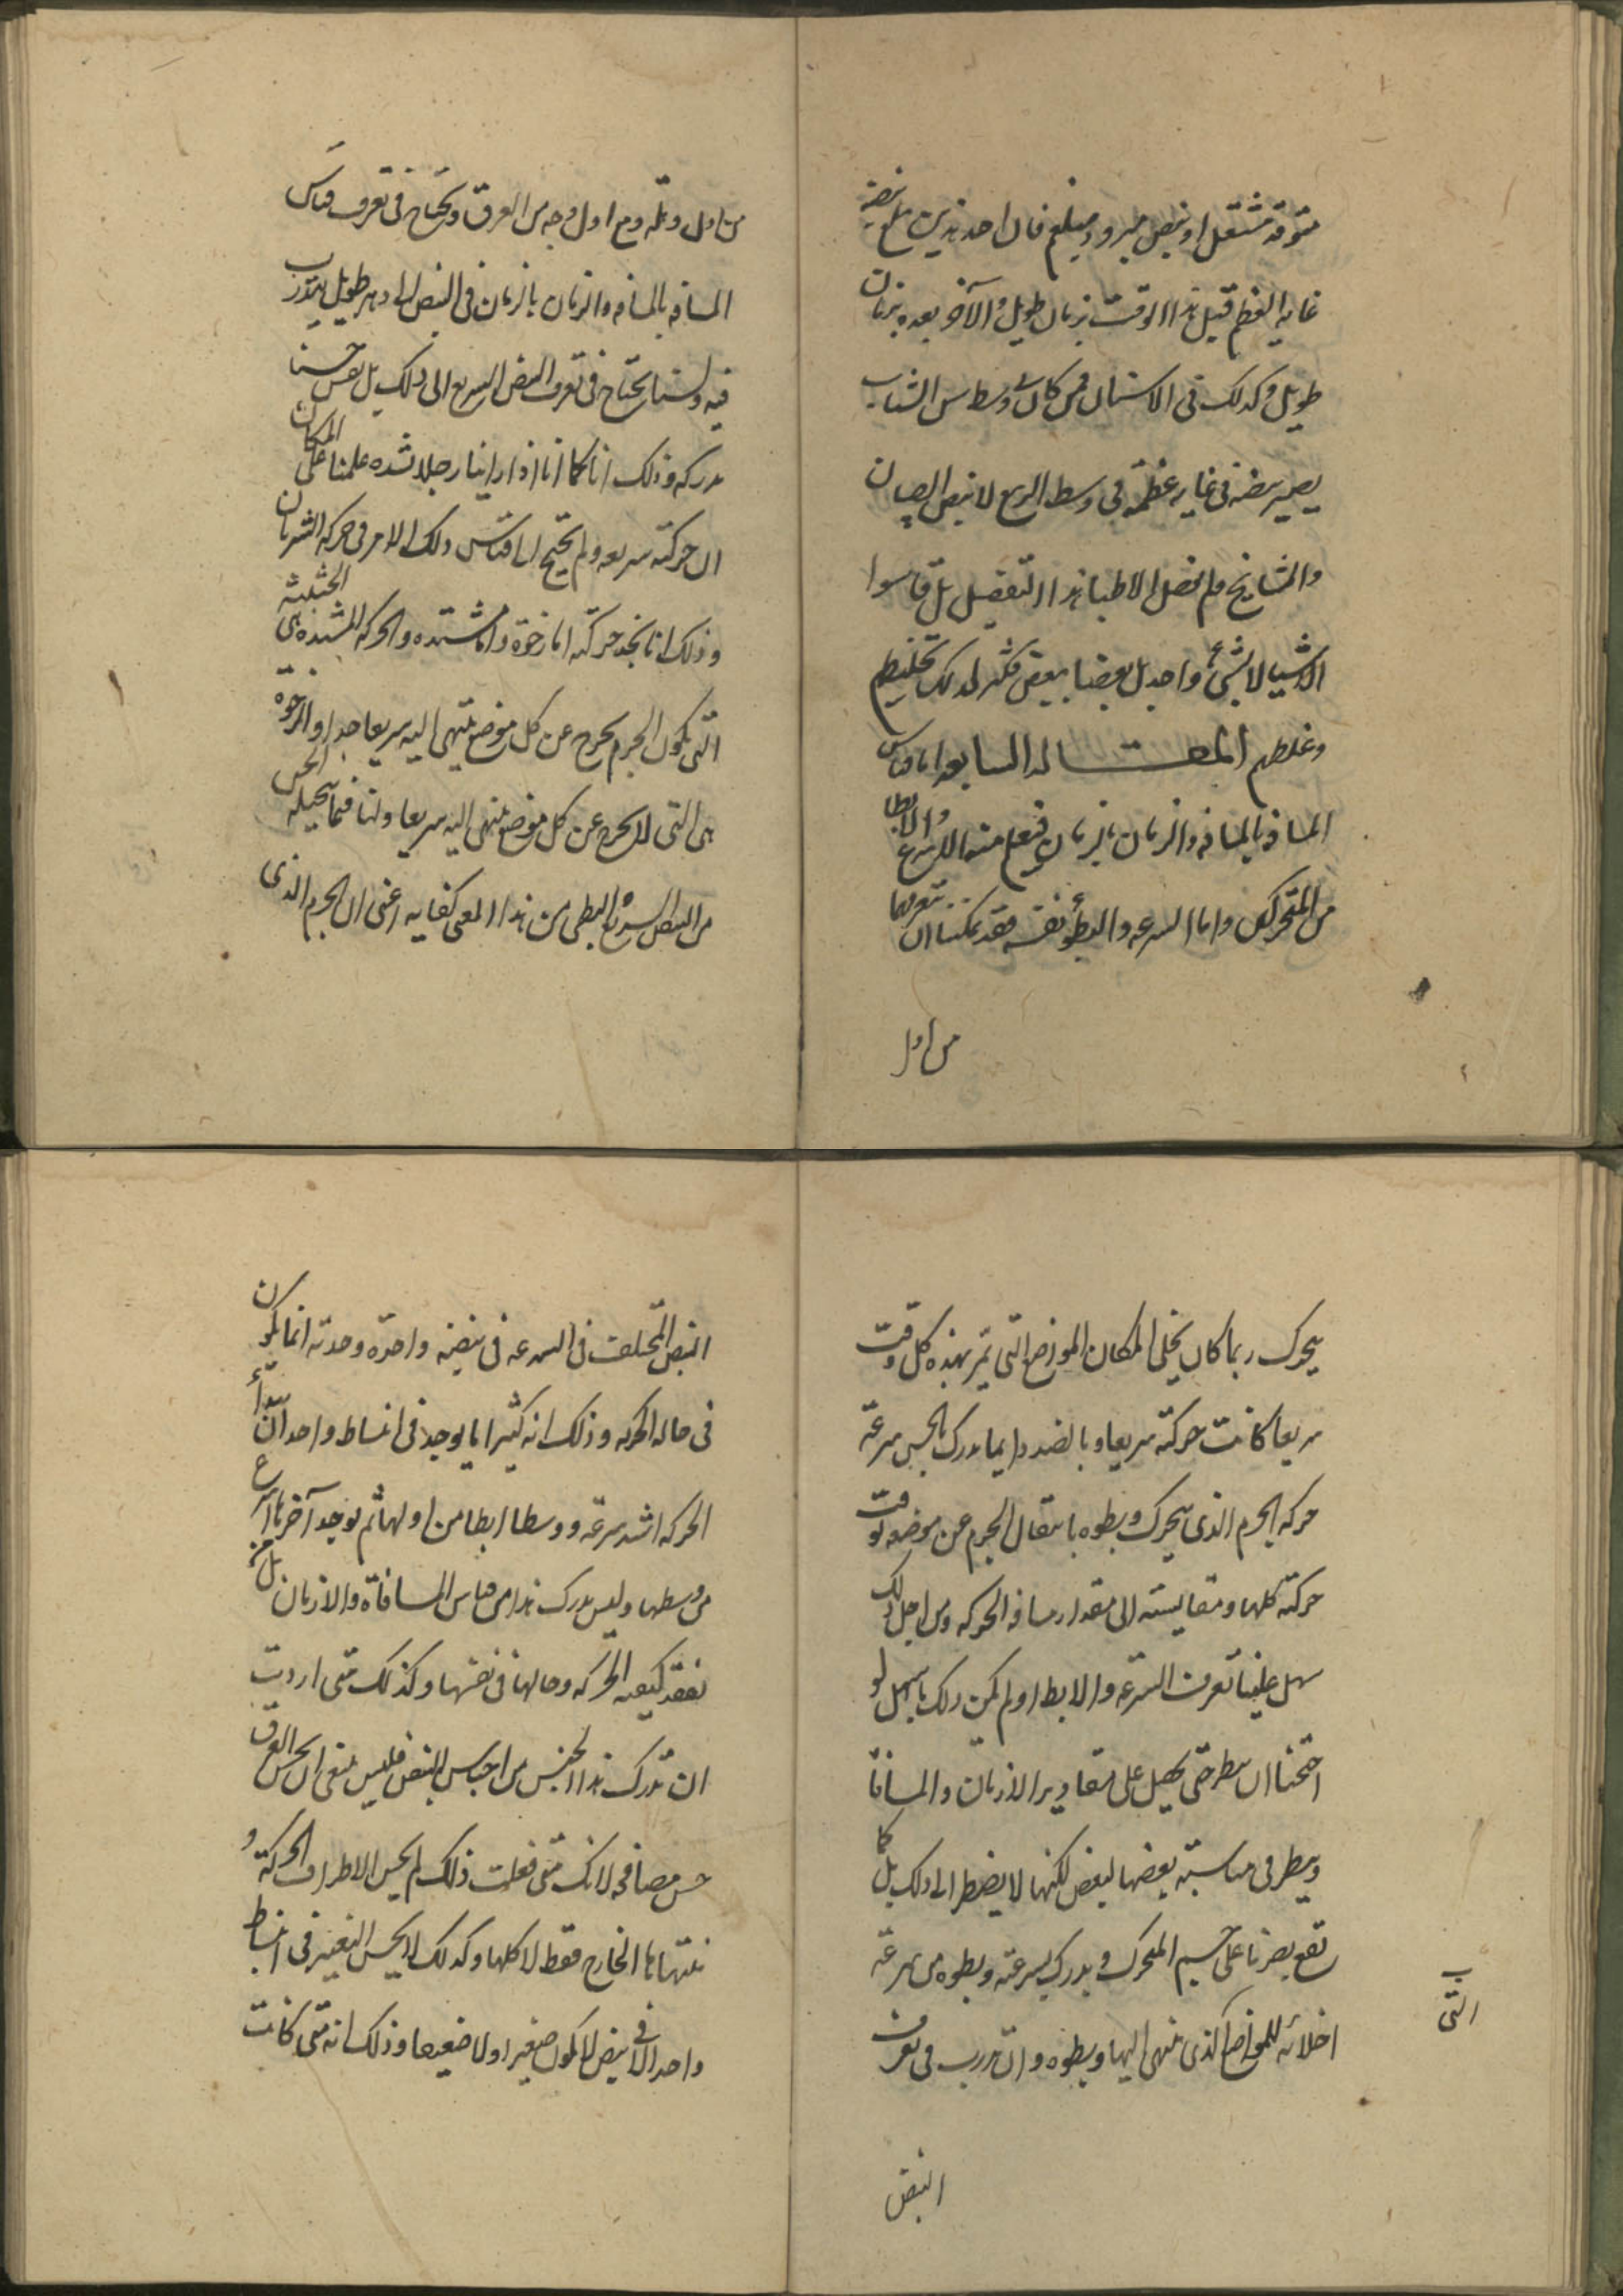 متوقد مشتعل او نبض مبرود مبلغم فان احد هذين يبلغ نبضه
غايه العظم قبل هذا الوقت بزمان طويل والآخر بعده بزمان
طويل وكذلك فى الاسنان فمن كان فى وسط سن الشباب
يصير نبضه فى غايه عظمه فى وسط الربيع لا نبض الصبيان
والمشايخ ولم يفصل الاطبا هذا التفصيل بل قاسوا
الاشيا لا بشئ واحد بل بعضها ببعض فكثر لذلك تخليطهم
وغلطهم المقـــــاله السابعه اما قياس
المسافه بالمسافه والزمان بالزمان فيعلم منه الاسرع والابطا
من المتحركين واما السرعه والبطؤ نفسه فقد يمكننا ان نتعرفهما
من اول
من اول وهله ومع اول وجه من العرق ويحتاج فى تعرف قياس
المسافه بالمسافه والزمان بالزمان فى النبض الى دهر طويل يتدرب
فيه ولسنا نحتاج فى تعرف النبض السريع الى ذلك بل نفس حسنا
يدركه وذلك انا كما انا اذا راينا رجلا بشده علمنا على المكان
ان حركته سريعه ولم نحتج الى قياس ذلك الامر فى حركه الشريان
وذلك انا نجد حركته اما رخوة واما مشتده والحركه المشتده هى الحثيثه
التى يكون الجرم يخرج عن كل موضع ينتهى اليه سريعا جدا والرخوة
هى التى لا يخرج عن كل موضع ينتهى اليه سريعا ولنا فيما يتخيله الحس
من النبض السريع والبطى من هذا المعنى كفايه اعنى ان الجرم الذى
يتحرك ربما كان يخلى المكان المواضع التى يمر بهذه كل وقت
سريعا كانت حركته سريعا وبالضد وايما يدرك بالحس سرعة
حركه الجرم الذى يتحرك وبطوه بانتقال الجرم عن موضعه لوقت
حركته كلها ومقايسته الى مقدار مسافه الحركه ومن اجل ذلك
سهل علينا تعرف السرعه والابطا ولم يكن ذلك بالسهل لو
احتجنا ان ننظر حتى نحصل على مقادير الازمان والمسافا
وننظر فى مناسبة بعضها لبعض لكنها لا يضطر الى ذلك بل كما
تقع بصرنا على جسم المتحرك ويدرك بسرعته وبطوه من سرعة
اخلائه للمواضع الذى ينتهى اليها وبطوه وان تدرب فى تعرف
التى
النبض
النبض المختلف فى السرعه فى نبضه واحدة وحدته انما يكون
فى حاله الحركه وذلك انه كثيرا ما يوجد فى انبساط واحد ان مبتدأ
الحركه اشد سرعة ووسطها ابطا من اولها ثم يوجد آخرها اسرع
من وسطها وليس يدرك هذا من قياس المسافاة والازمان بل من
تفقد كيفيه الحركه وحالها فى نفسها وكذلك متى اردت
ان تدرك هذا الجنس من اجناس النبض فليس ينبغى ان تحس العرق
حس مصافحه لانك متى فعلت ذلك لم تحس الا طرف الحركة و
نهايتها الخارج فقط لا كلها وكذلك لا تحس التغير فى انبساط
واحد الا فى نبض لا يكون صغيرا ولا ضعيفا وذلك انه متى كانت